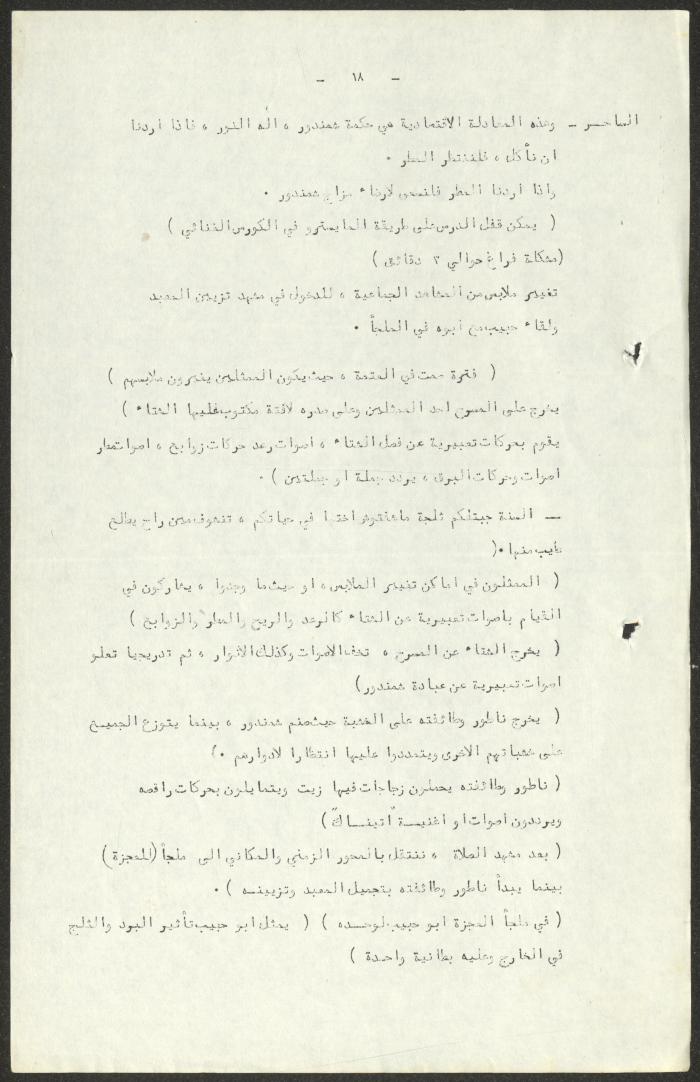 - ١٨ -
الساحر - وهذه المعادلة الاقتصادية هي حكمة شمندور ، اله النور ، فاذا اردنا
ان نأكل ، فلننتظر المطر .
واذا اردنا المطر فلنسعى لارضاء مزاج شمندور .
( يمكن قفل الدرس على طريقة المايسترو في الكورس الغنائي )
(مشكلة فراغ حوالي ٣ دقائق )
تغيير ملابس من المشاهد الجماعية ، للدخول في مشهد تزيين المعبد
ولقاء حبيب مع ابوه في الملجأ .
( فترة صمت في العتمة ، حيث يكون الممثلين يغيرون ملابسهم )
يخرج على المسرح احد الممثلين وعلى صدره لافتة مكتوب عليها الشتاء )
يقوم بحركات تعبيرية عن فصل الشتاء ، اصوات رعد حركات زوابع ، اصوات مطار
اصوات وحركات البرق ، يردد جملة او جملتين ) .
- السنة جبتلكم ثلجة ما شفتوش اختها في حياتكم ، تنشوف مين راح يطلع
طيب منها .(
( الممثلون في اماكن تغيير الملابس ، او حيث ما وجدوا ، يشاركون في
القيام باصوات تعبيرية عن الشتاء كالرعد والريح والمطر والزوابع )
( يخرج الشتاء عن المسرح ، تخف الاصوات وكذلك الانوار ، ثم تدريجيا تعلو
اصوات تعبيرية عن عبادة شمندور)
( يخرج ناطور وطائفته على الخشبة حيث صنم شمندور ، بينما يتوزع الجميع
على خشباتهم الاخرى ويتمددوا عليها انتظارا لادوارهم .)
( ناطور وطائفته يحملون زجاجات فيها زيت ويتمايلون بحركات راقصه
ويرددون اصوات او اغنيسة "اتينساك")
( بعد مشهد الصلاة ، ننتقل بالمحور الزمني والمكاني الى ملجأ (المعجزة)
بينما يبدأ ناطور وطائفته بتجميل المعبد وتزيينه ) .
( في ملجأ العجزة ابو حبيب لوحده ) ( يمثل ابو حبيب تأثير البرد والثلج
في الخارج وعليه بطانية واحدة )